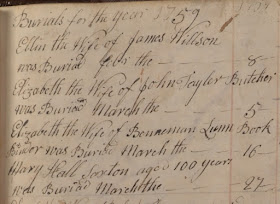 Burials for the Year 1759
Ellin the Wife of James Willson
was Buried the — 8
Elizabeth the Wife of John Tayler Butcher
was Buried March the — 5
Elizabeth the Wife of Benneman Lunn Book
was Buried March the — 16
Mary Hall aged 100 years
was Buried March the — 27